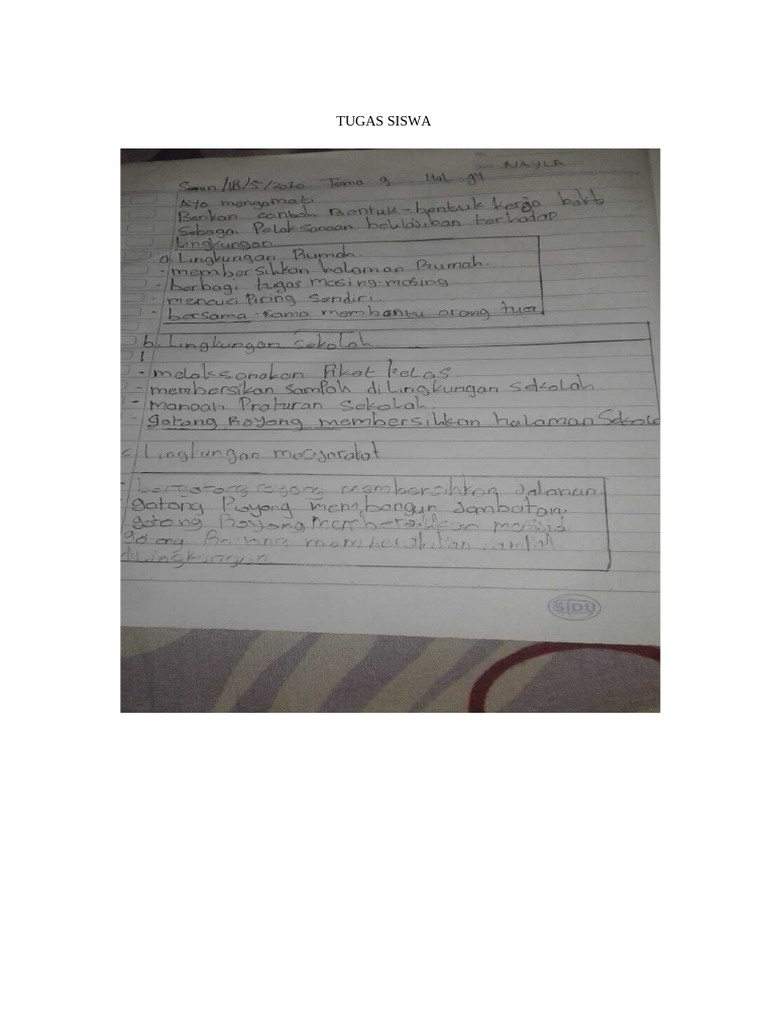 TUGAS SISWA
NAYLA
Senin/18/5/2020 Tema 9 Hal 94
Ayo mengamati
Berikan contoh Bentuk-bentuk kerja bakti
Sebagai Pelaksanaan terhadap
Lingkungan
a. Lingkungan Rumah.
- membersihkan halaman Rumah.
- berbagi tugas masing-masing
- mencuci Piring Sendiri.
- bersama-sama membantu orang tua
b. Lingkungan Sekolah
1
- melaksanakan Piket kelas
- membersikan Sampah di Lingkungan Sekolah
- Praturan Sekolah.
- gotong Royong membersihkan halaman
c. Lingkungan masyarakat
- bergotong royong membersihkan Jalanan
gotong Royong membangun Jambatan.
gotong Royong membersihkan masjid
gotong Royong
di Lingkungan
SIDU